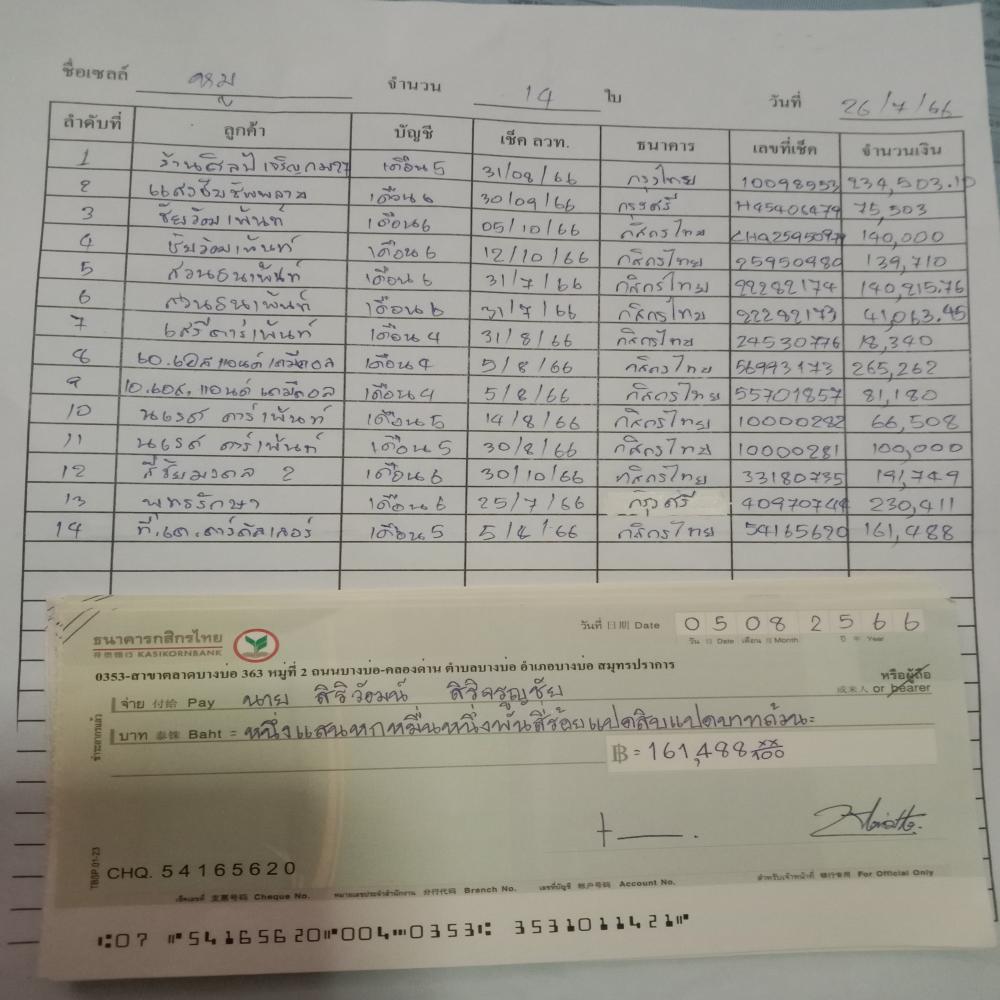 ชื่อเซลล์ หมู จำนวน 14 ใบ วันที่ 26/7/66
ลำดับที่ ลูกค้า บัญชี เช็ค ลวท. ธนาคาร เลขที่เช็ค จำนวนเงิน
1 ร้านศิลป์เจริญ เดือน 5 31/08/66 กรุงไทย 10098953 234,503.10
2 เดือน 6 30/09/66 กรุงศรี 75,503
3 เดือน 6 05/10/66 กสิกรไทย 140,000
4 เดือน 6 12/10/66 กสิกรไทย 25950980 139,710
5 สวนธนเพ้นท์ เดือน 6 31/7/66 กสิกรไทย 22282174 140,215.76
6 สวนธนเพ้นท์ เดือน 6 31/7/66 กสิกรไทย 22282173 41,063.45
7 เสรีคาร์เพ้นท์ เดือน 4 31/8/66 กสิกรไทย 24530776 18,340
8 เอ.เอส แอนด์ เคมีคอล เดือน 4 5/8/66 กสิกรไทย 56993173 265,262
9 เอ.เอส. แอนด์ เคมีคอล เดือน 4 5/8/66 กสิกรไทย 55701857 81,180
10 นเรศ คาร์เพ้นท์ เดือน 5 14/8/66 กสิกรไทย 10000282 66,508
11 นเรศ คาร์เพ้นท์ เดือน 5 30/8/66 กสิกรไทย 10000281 100,000
12 สี่ชัยมงคล 2 เดือน 6 30/10/66 กสิกรไทย 33180735 191,749
13 พุทธรักษา เดือน 6 25/7/66 กรุงศรี 40970744 230,411
14 ที.เค.คาร์คัลเลอร์ เดือน 5 5/8/66 กสิกรไทย 54165620 161,488
ธนาคารกสิกรไทย
KASIKORNBANK
วันที่ 日期 Date 0 5 0 8 2 5 6 6
วัน 日 Date เดือน 月 Month ปี 年 Year
0353-สาขาตลาดบางบ่อ 363 หมู่ที่ 2 ถนนบางบ่อ-คลองด่าน ตำบลบางบ่อ อำเภอบางบ่อ สมุทรปราการ
หรือผู้ถือ
จ่าย 付給 Pay นาย สิริวัฒน์ สิริจรูญชัย or bearer
บาท 泰銖 Baht = หนึ่งแสนหกหมื่นหนึ่งพันสี่ร้อยแปดสิบแปดบาทถ้วน
฿ = 161,488 xx/100
TBSP 01-23
CHQ. 54165620
เช็คเลขที่ 支票号码 Cheque No. หมายเลขประจำสำนักงาน 分行代码 Branch No. เลขที่บัญชี 帐户号码 Account No. สำหรับเจ้าหน้าที่ 银行专用 For Official Only
⑆07 ⑈54165620⑈004⑉0353⑆ 3531011421⑈